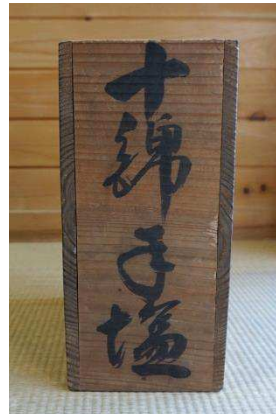 十錦手塩